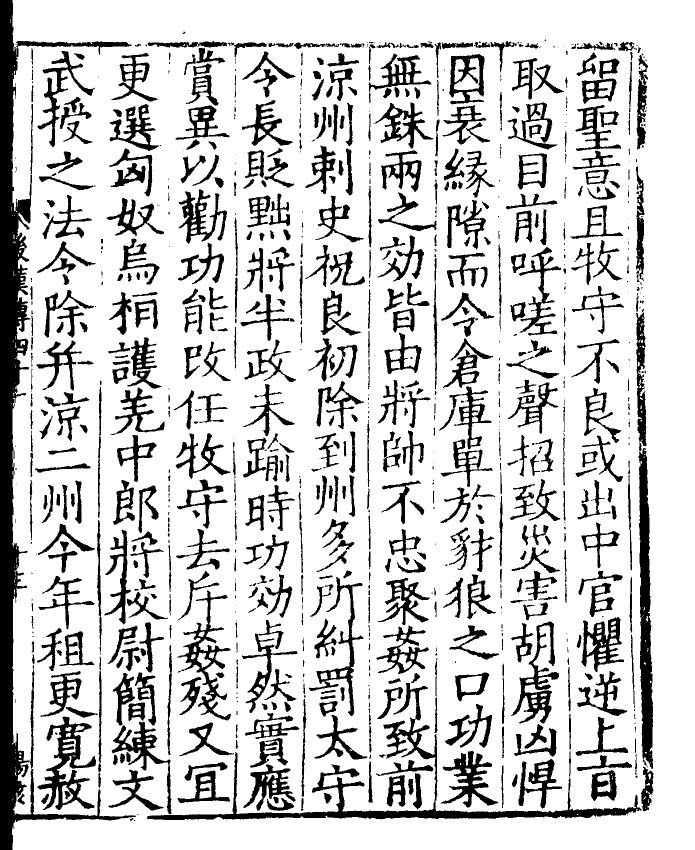 留聖意且牧守不良或出中官懼逆上㫖
取過目前呼嗟之聲招致災害胡虜凶悍
因衰縁隙而令倉庫單於豺狼之口功業
無銖兩之効皆由將帥不忠聚姦所致前
涼州刺史祝良初除到州多所糾罰太守
令長貶黜將半政未踰時功効卓然實應
賞異以勸功能改任牧守去斥姦殘又冝
更選匈奴烏桓護羌中郎將校尉簡練文
武授之法令除并涼二州今年租更寬赦
後漢傳四十一